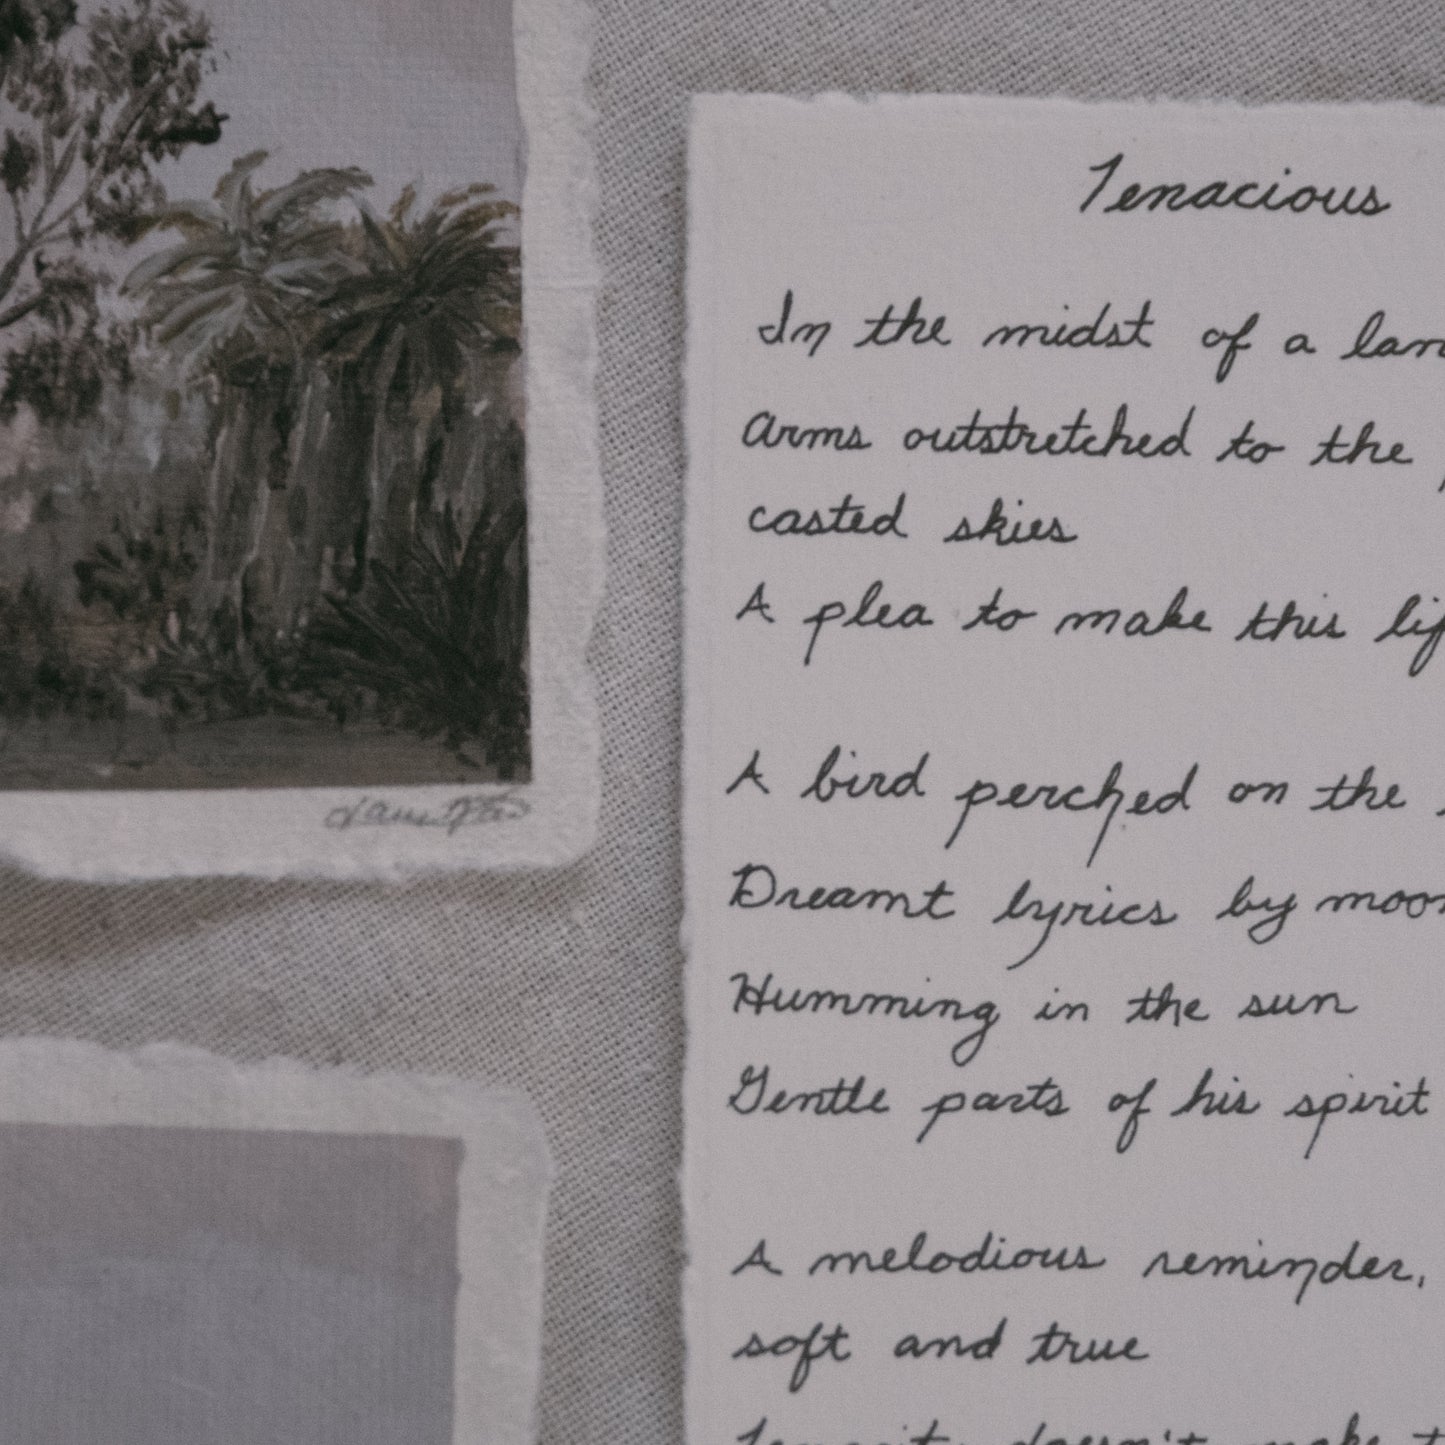 Tenacious
In the midst of a
Arms outstretched to the
casted skies
A plea to make this
A bird perched on the
Dreamt lyrics by
Humming in the sun
Gentle parts of his spirit
A melodious reminder,
soft and true
doesn't make